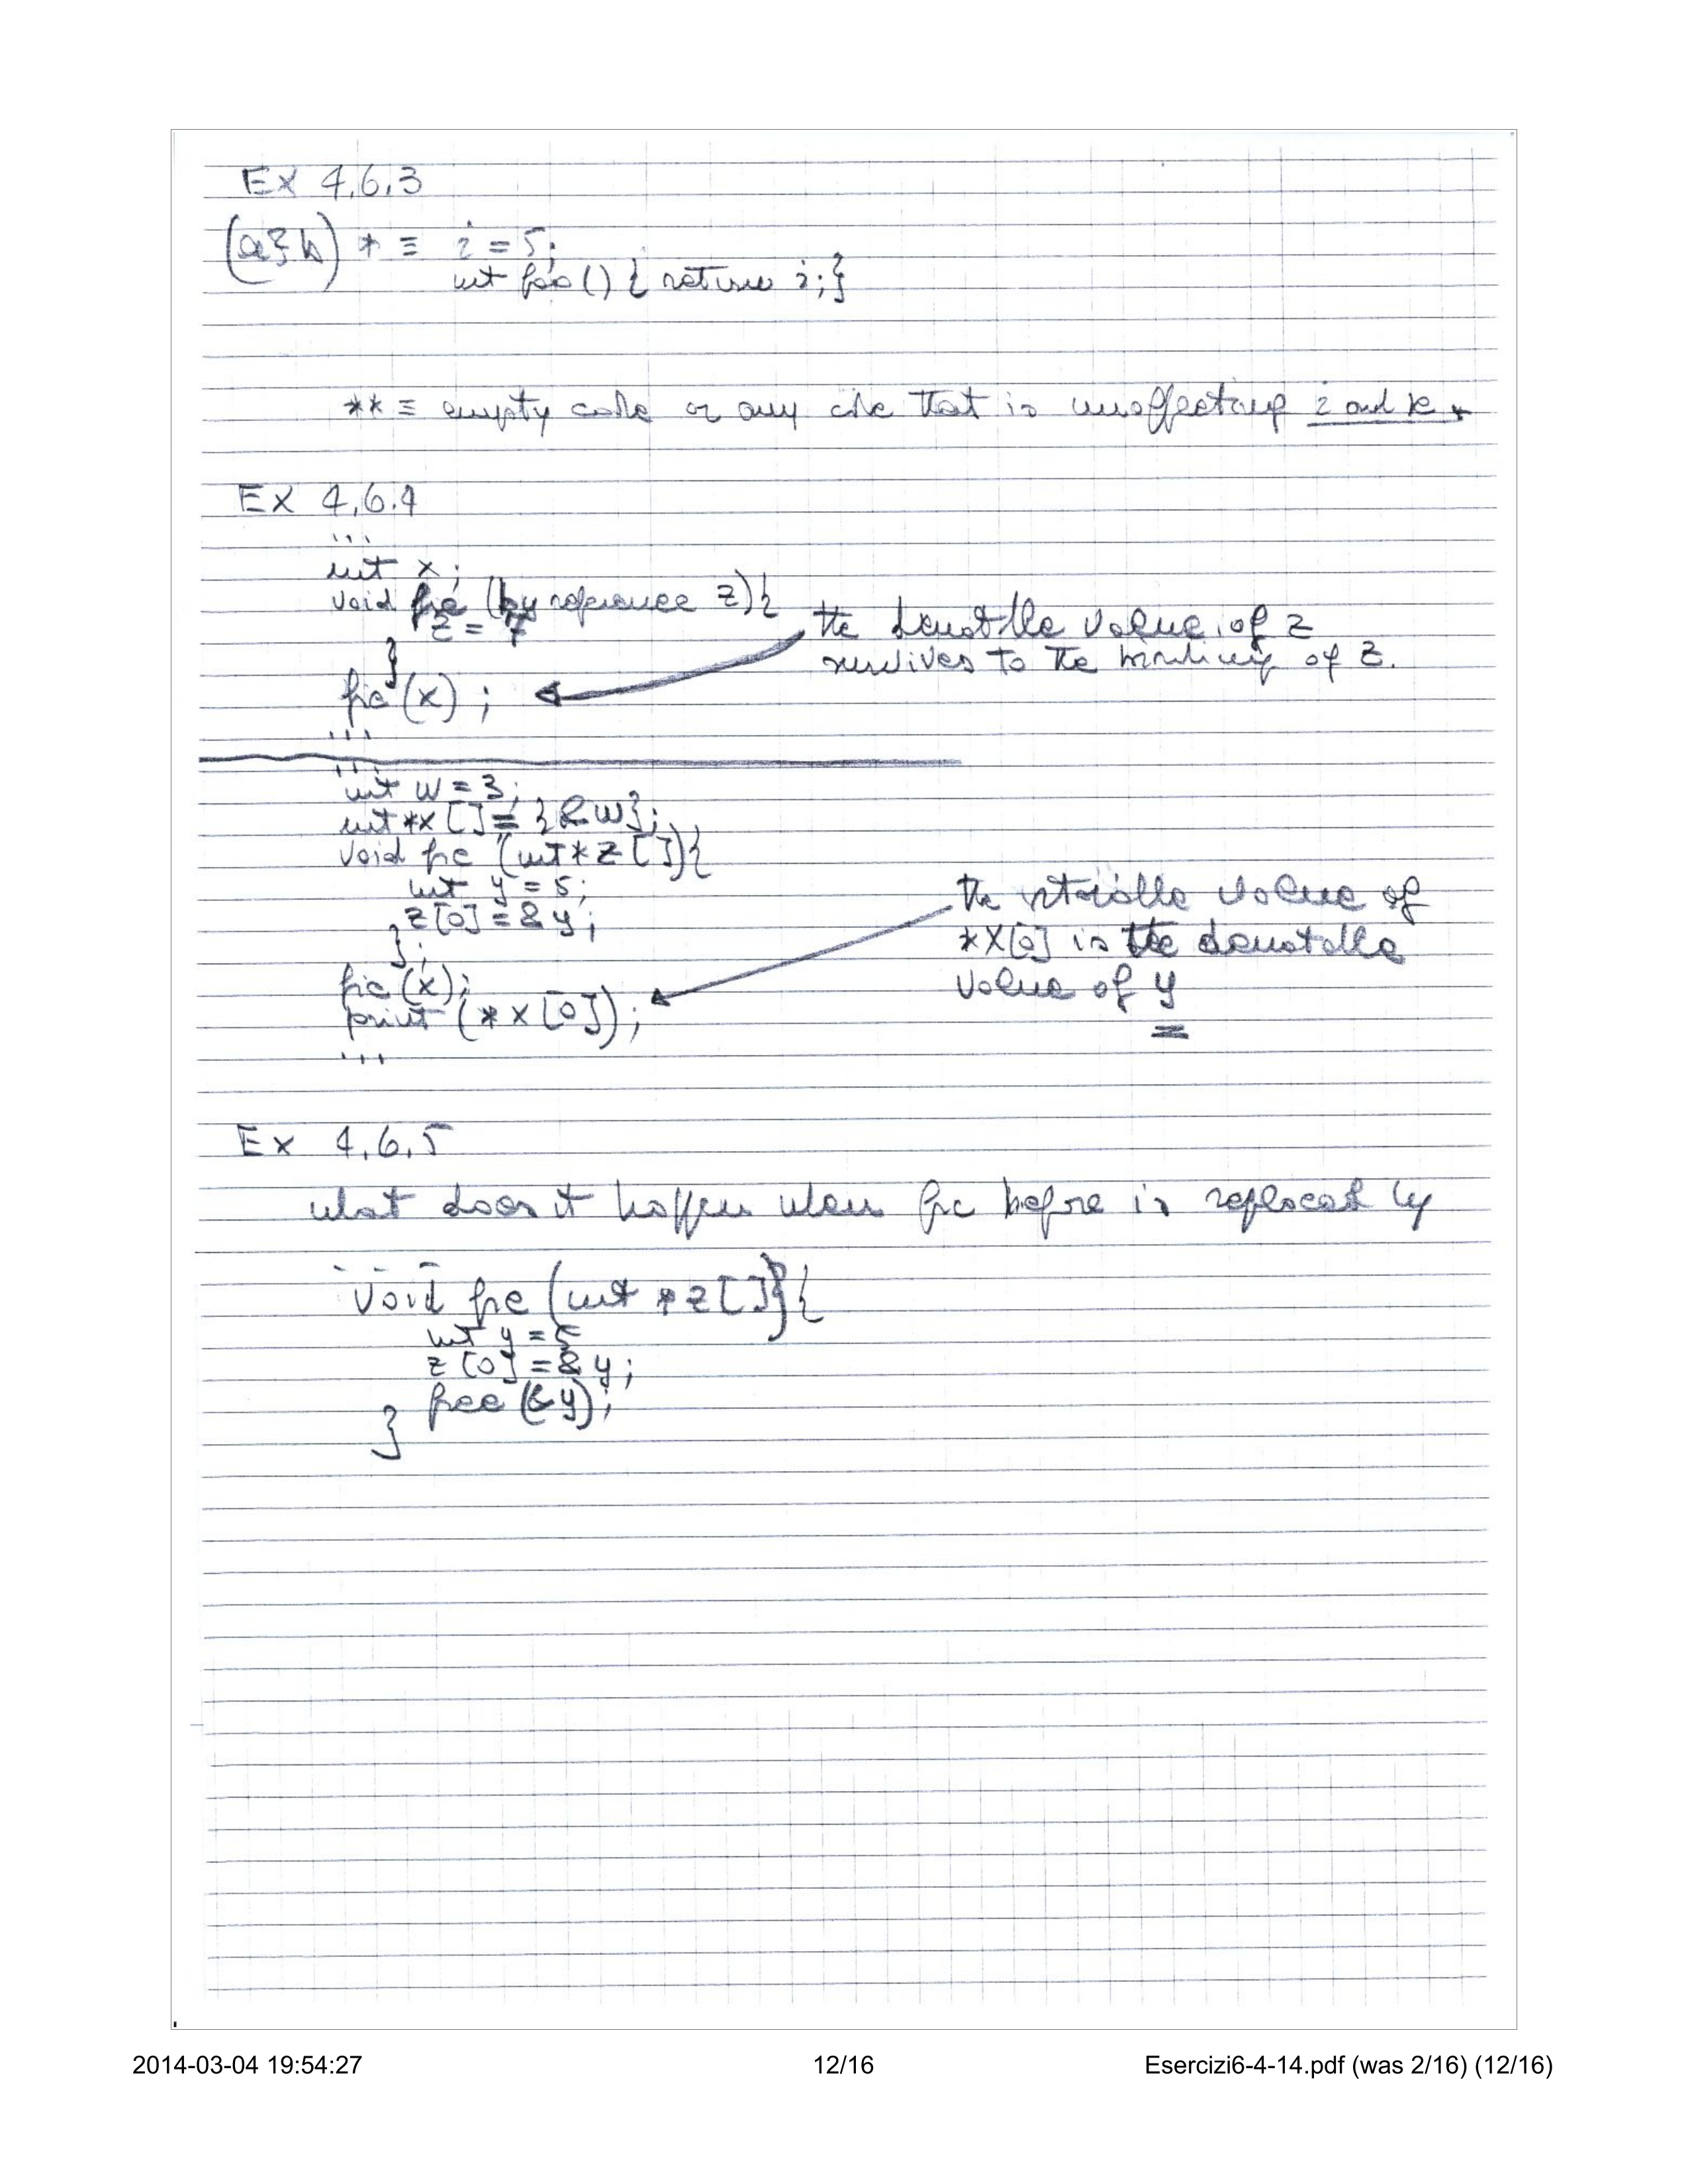 EX 4.6.3
(a&b) * ≡ i = 5;
int foo() { return i; }
** ≡ empty code or any code that is unaffecting i and k.
EX 4.6.4
...
int x;
void fie (by reference z) {
z = 7
}
the denotable value of z
survives to the binding of z.
fie(x);
...
...
int w = 3;
int *x[] = {&w};
void fie (int *z[]) {
int y = 5;
z[0] = &y;
};
fie(x);
print (*x[0]);
...
the storable value of
*x[0] is the denotable
value of y
Ex 4.6.5
what does it happen when fie before is replaced by
- - -
void fie (int *z[]) {
int y = 5
z[0] = &y;
free (&y);
}
2014-03-04 19:54:27 12/16 Esercizi6-4-14.pdf (was 2/16) (12/16)